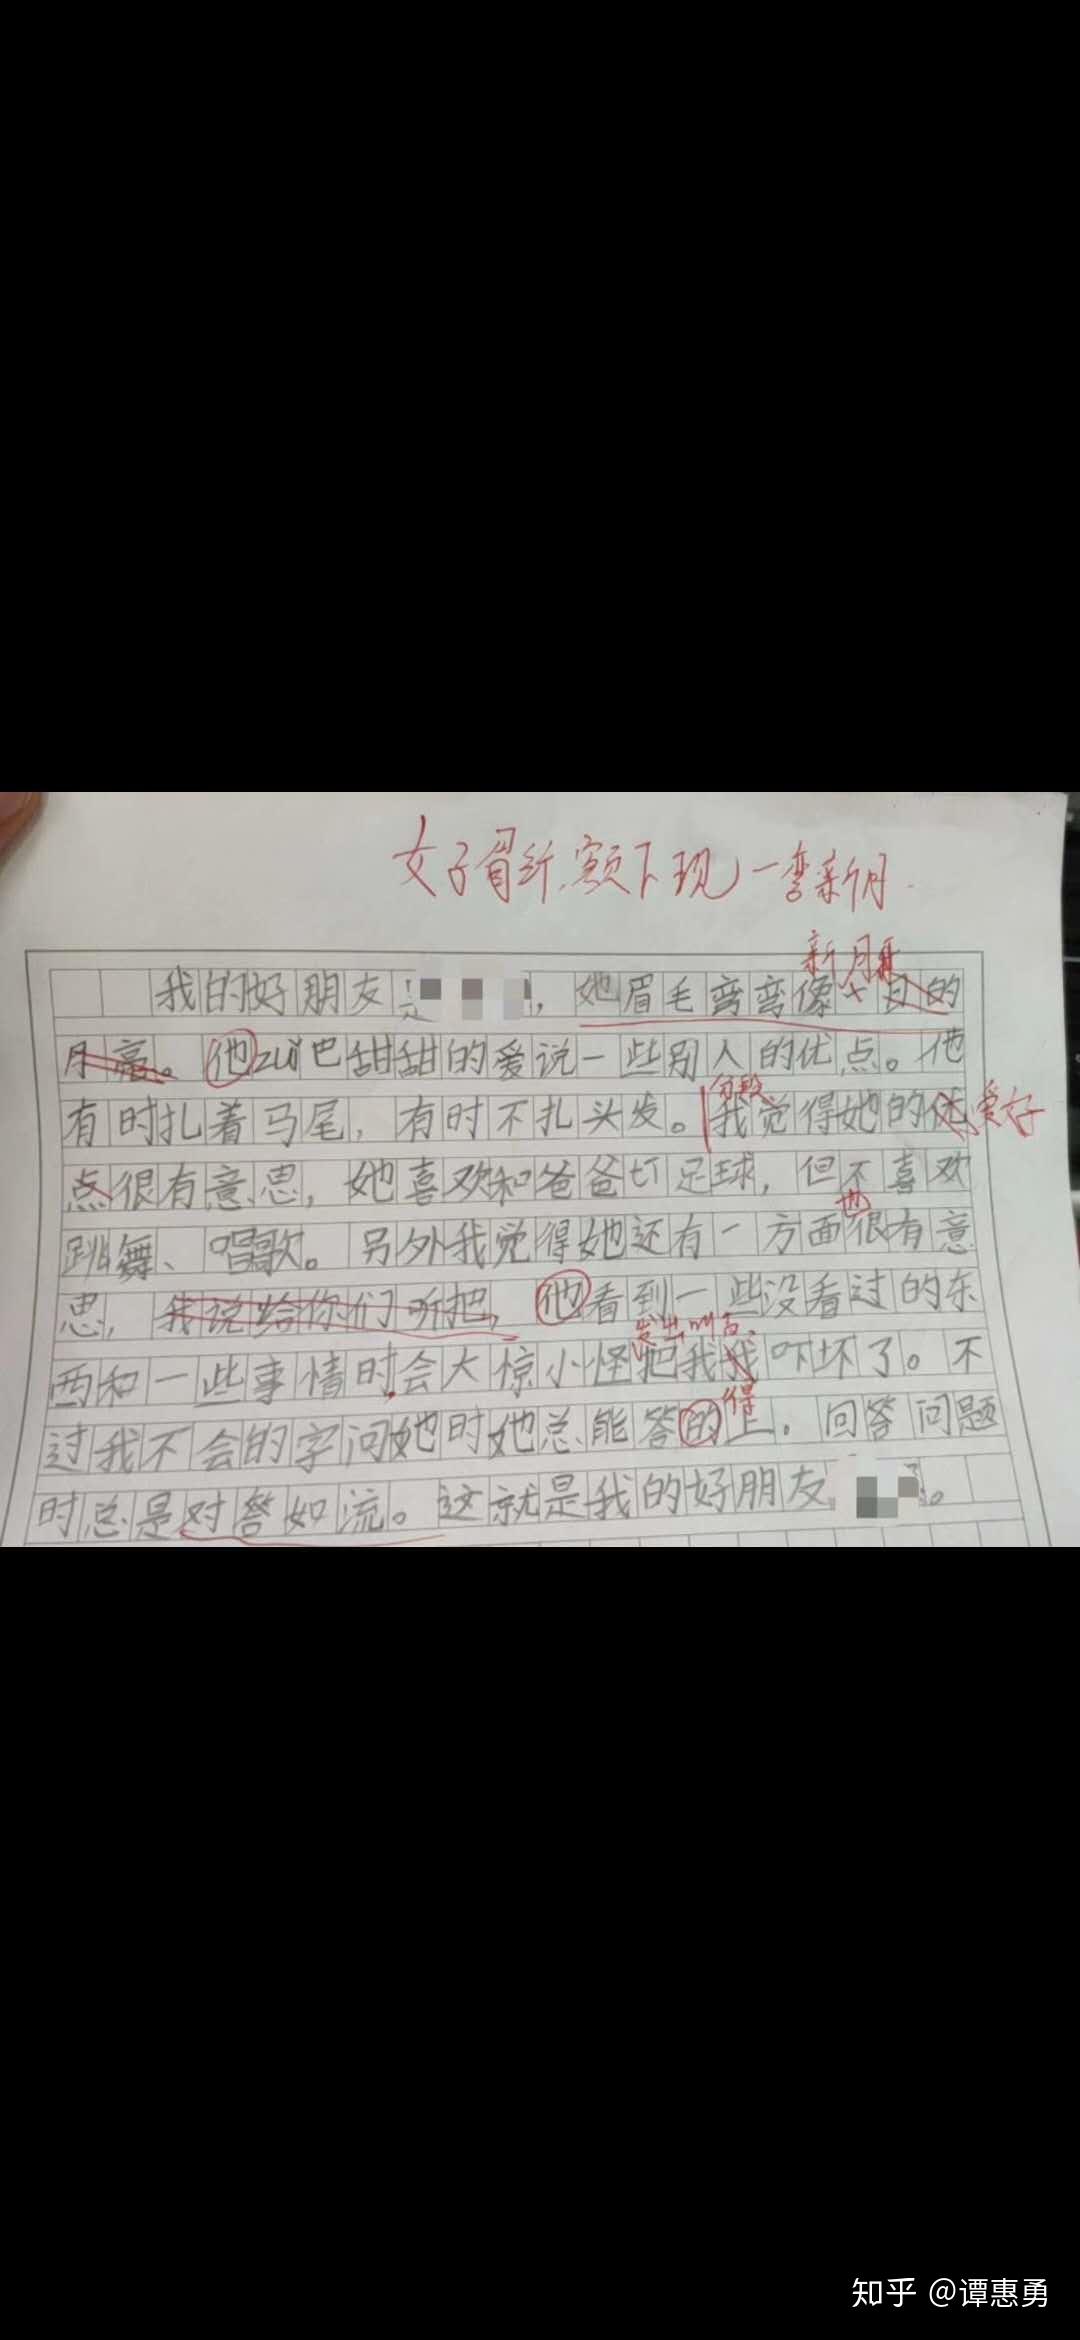 女子眉纤,额下现一弯新月.
新月
我的好朋友是,她眉毛弯弯像十五日的
月亮。他zuǐ巴甜甜的爱说一些别人的优点。他
分段
有时扎着马尾,有时不扎头发。我觉得她的优爱好
点很有意思,她喜欢和爸爸打足球,但不喜欢
也
跳舞、唱歌。另外我觉得她还有一方面很有意
思,我说给你们听把,他看到一些没看过的东
发出叫声.
西和一些事情时会大惊小怪把我我吓坏了。不
得
过我不会的字问她时她总能答的上.回答问题
时总是对答如流。这就是我的好朋友。
知乎 @谭惠勇